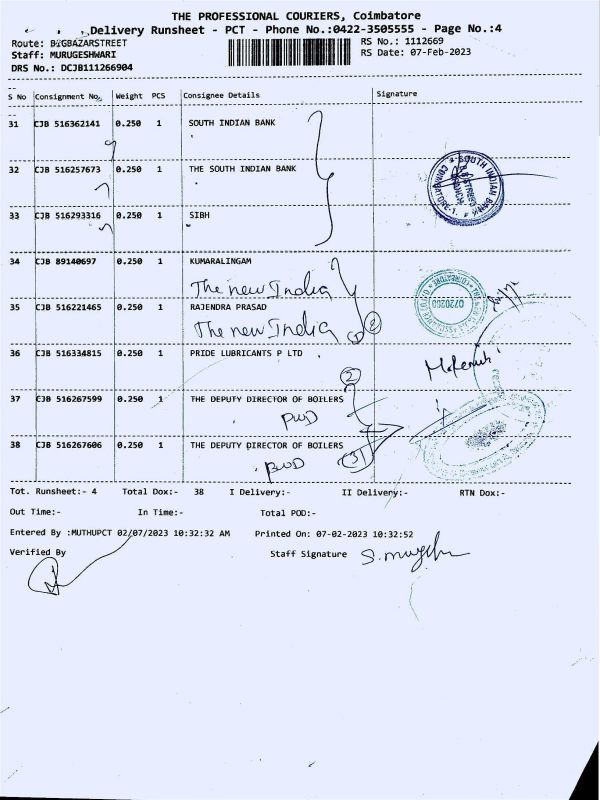 THE PROFESSIONAL COURIERS, Coimbatore
Delivery Runsheet - PCT - Phone No.:0422-3505555 - Page No.:4
Route: BIGBAZARSTREET
RS No.: 1112669
Staff: MURUGESHWARI
RS Date: 07-Feb-2023
DRS No.: DCJB111266904
S No Consignment No. Weight PCS Consignee Details Signature
31 CJB 516362141 0.250 1 SOUTH INDIAN BANK
32 CJB 516257673 0.250 1 THE SOUTH INDIAN BANK
SOUTH INDIAN BANK
COIMBATORE-1
33 CJB 516293316 0.250 1 SIBH
34 CJB 89140697 0.250 1 KUMARALINGAM
The new India
35 CJB 516221465 0.250 1 RAJENDRA PRASAD
The new India
(2)
36 CJB 516334815 0.250 1 PRIDE LUBRICANTS P LTD
(2)
37 CJB 516267599 0.250 1 THE DEPUTY DIRECTOR OF BOILERS
PWD
38 CJB 516267606 0.250 1 THE DEPUTY DIRECTOR OF BOILERS
PWD (3)
Tot. Runsheet:- 4 Total Dox:- 38 I Delivery:- II Delivery:- RTN Dox:-
Out Time:- In Time:- Total POD:-
Entered By :MUTHUPCT 02/07/2023 10:32:32 AM Printed On: 07-02-2023 10:32:52
Verified By Staff Signature